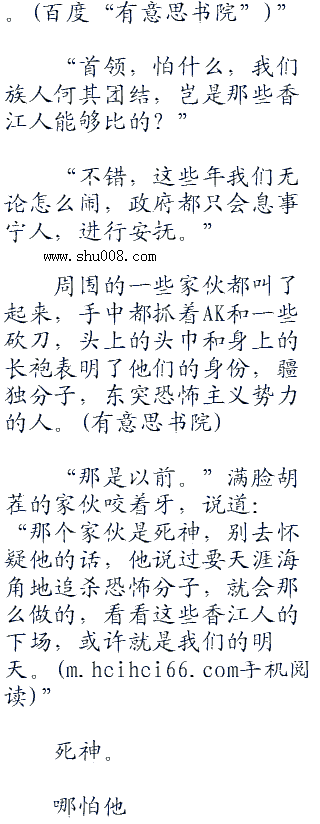 。(百度“有意思书院”)”
“首领，怕什么，我们
族人何其团结，岂是那些香
江人能够比的？”
“不错，这些年我们无
论怎么闹，政府都只会息事
宁人，进行安抚。”
www.shu008.com
周围的一些家伙都叫了
起来，手中都抓着AK和一些
砍刀，头上的头巾和身上的
长袍表明了他们的身份，疆
独分子，东突恐怖主义势力
的人。(有意思书院)
“那是以前。”满脸胡
茬的家伙咬着牙，说道：
“那个家伙是死神，别去怀
疑他的话，他说过要天涯海
角地追杀恐怖分子，就会那
么做的，看看这些香江人的
下场，或许就是我们的明
天。(m.hcihci66.com手机阅
读)”
死神。
哪怕他